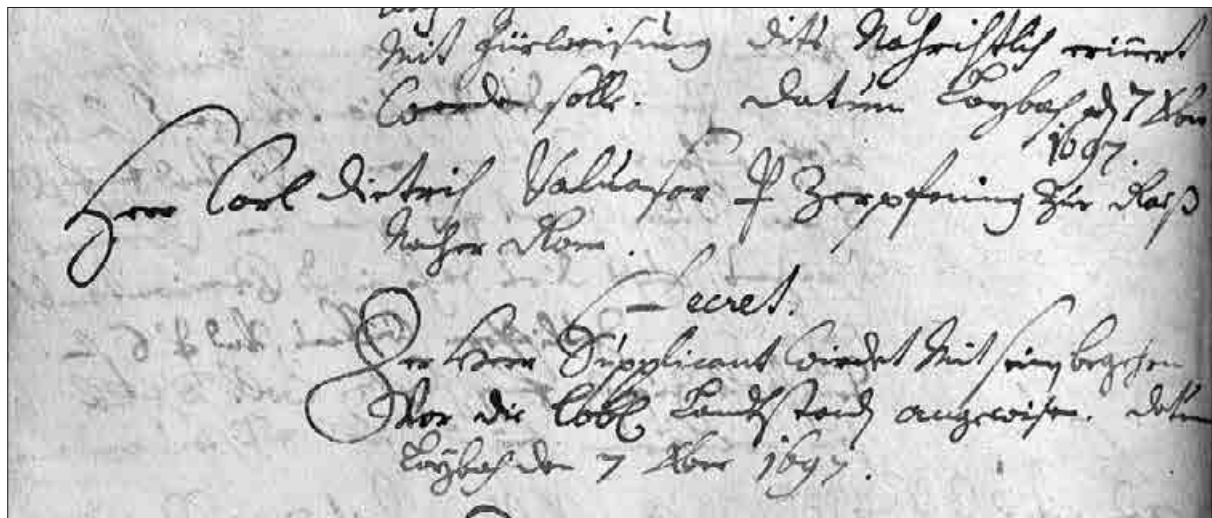 Mit hinweisung dits Nachrichtlich erinnert
werden solle. Datum Laybach den 7 Xber
1697.
Herr Carl Dietrich Valuasor P Zerpfening zur Raiß
Nacher Rom.
Decret.
Der Herr Supplicant wirdet Mit seim begehren
Vor die löbl Landtständ angewisen. Datum
Laybach den 7 Xber 1697.